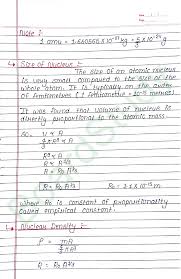 Note :
1 amu = 1.660565 × 10⁻²⁷ kg
Size of Nucleus :-
The size of an atomic nucleus
is very small compared to the size of the
whole atom. It is typically on the order
of femtometers (1 femtometre = 10⁻¹⁵ metres)
It was found that volume of nucleus is
directly proportional to the atomic mass.
So, V ∝ A
4/3 πR³ ∝ A
R³ ∝ A
R ∝ A^1/3
R = R₀ A^1/3
R = R₀ A^1/3 R₀ = × 10⁻¹⁵ m
where R₀ is constant of proportionality
called empirical constant.
Nuclear Density :-
ρ = mA / 4/3 πR³
R = R₀ A^1/3